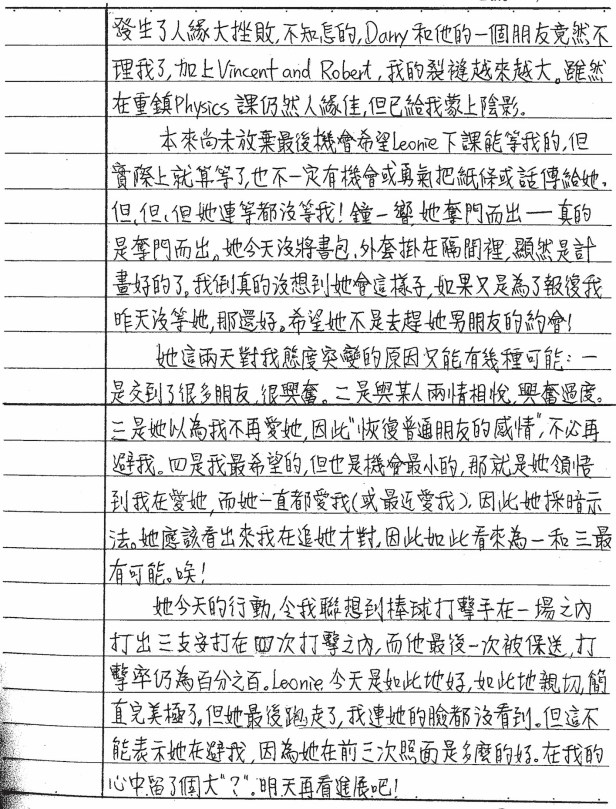 發生了人緣大挫敗,不知怎的,Dany和他的一個朋友竟然不
理我了,加上Vincent and Robert,我的裂縫越來越大。雖然
在重鎮Physics 課仍然人緣佳,但已給我蒙上陰影。
本來尚未放棄最後機會希望Leonie下課能等我的,但
實際上就算等了,也不一定有機會或勇氣把紙條或話傳給她。
但,但,但她連等都沒等我!鐘一響,她奪門而出──真的
是奪門而出。她今天沒將書包,外套掛在隔間裡,顯然是計
畫好的了。我倒真的沒想到她會這樣子,如果又是為了報復我
昨天沒等她,那還好。希望她不是去趕她男朋友的約會!
她這兩天對我態度突變的原因只能有幾種可能:一
是交到了很多朋友,很興奮。二是與某人兩情相悅,興奮過度。
三是她以為我不再愛她,因此"恢復普通朋友的感情",不必再
避我。四是我最希望的,但也是機會最小的,那就是她領悟
到我在愛她,而她一直都愛我(或最近愛我),因此她採暗示
法。她應該看出來我在追她才對,因此如此看來為一和三最
有可能。唉!
她今天的行動,令我聯想到棒球打擊手在一場之內
打出三支安打在四次打擊之內,而他最後一次被保送,打
擊率仍為百分之百。Leonie 今天是如此地好,如此地親切,簡
直完美極了。但她最後跑走了,我連她的臉都沒看到。但這不
能表示她在避我,因為她在前三次照面是多麼的好。在我的
心中留了個大"?"。明天再看進展吧!